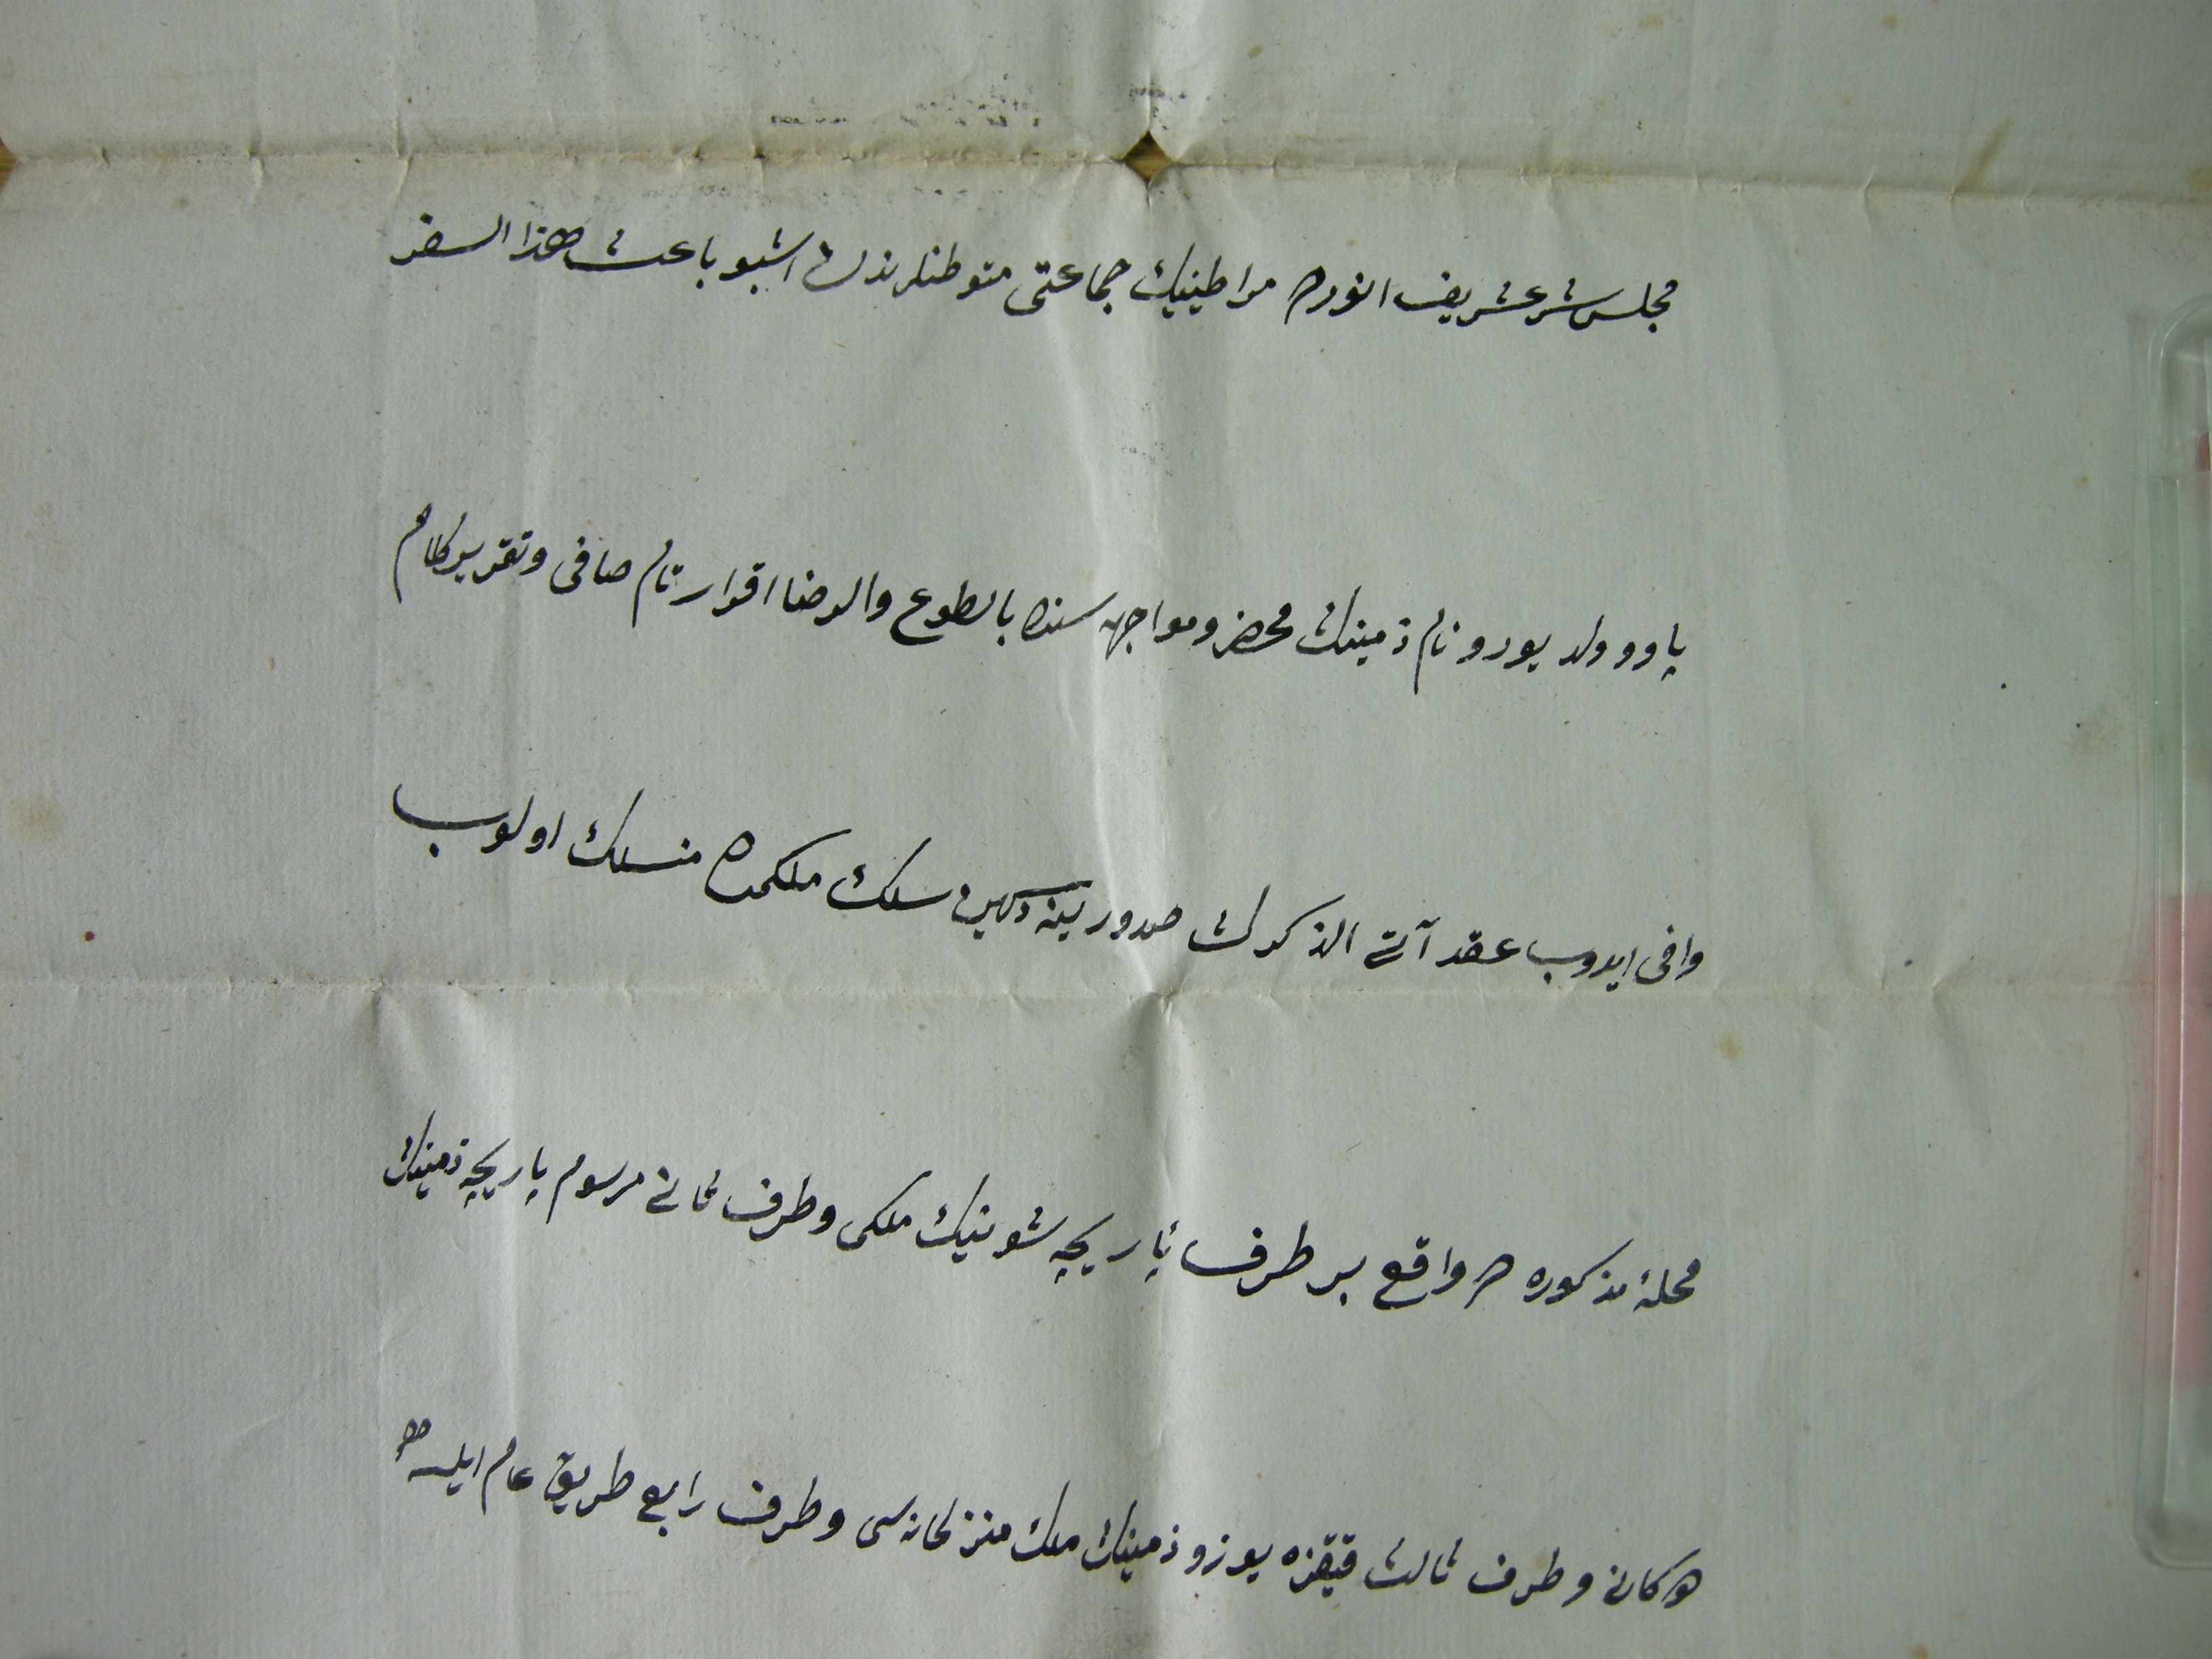 مجلس شرع شريف انورده مراطينيك جماعتى متوطنلرندن اشبو باعث هذا السفر
پاوو ولد يورو نام ذمينك محضر ومواجهه سنده بالطوع والرضا اقرار تام صافى وتقرير كلام
وافى ايدوب عقد آتى الذكرك صدورينه دكين سلك ملكمده منسلك اولوب
محلۀ مذكوره ده واقع بر طرف پاريچه شونينك ملكى وطرف ثانى مرسوم پاريچه ذمينك
دكانى وطرف ثالث قيقزه يوزو ذمينك ملك منزلخانه سى وطرف رابع طريق عام ايله